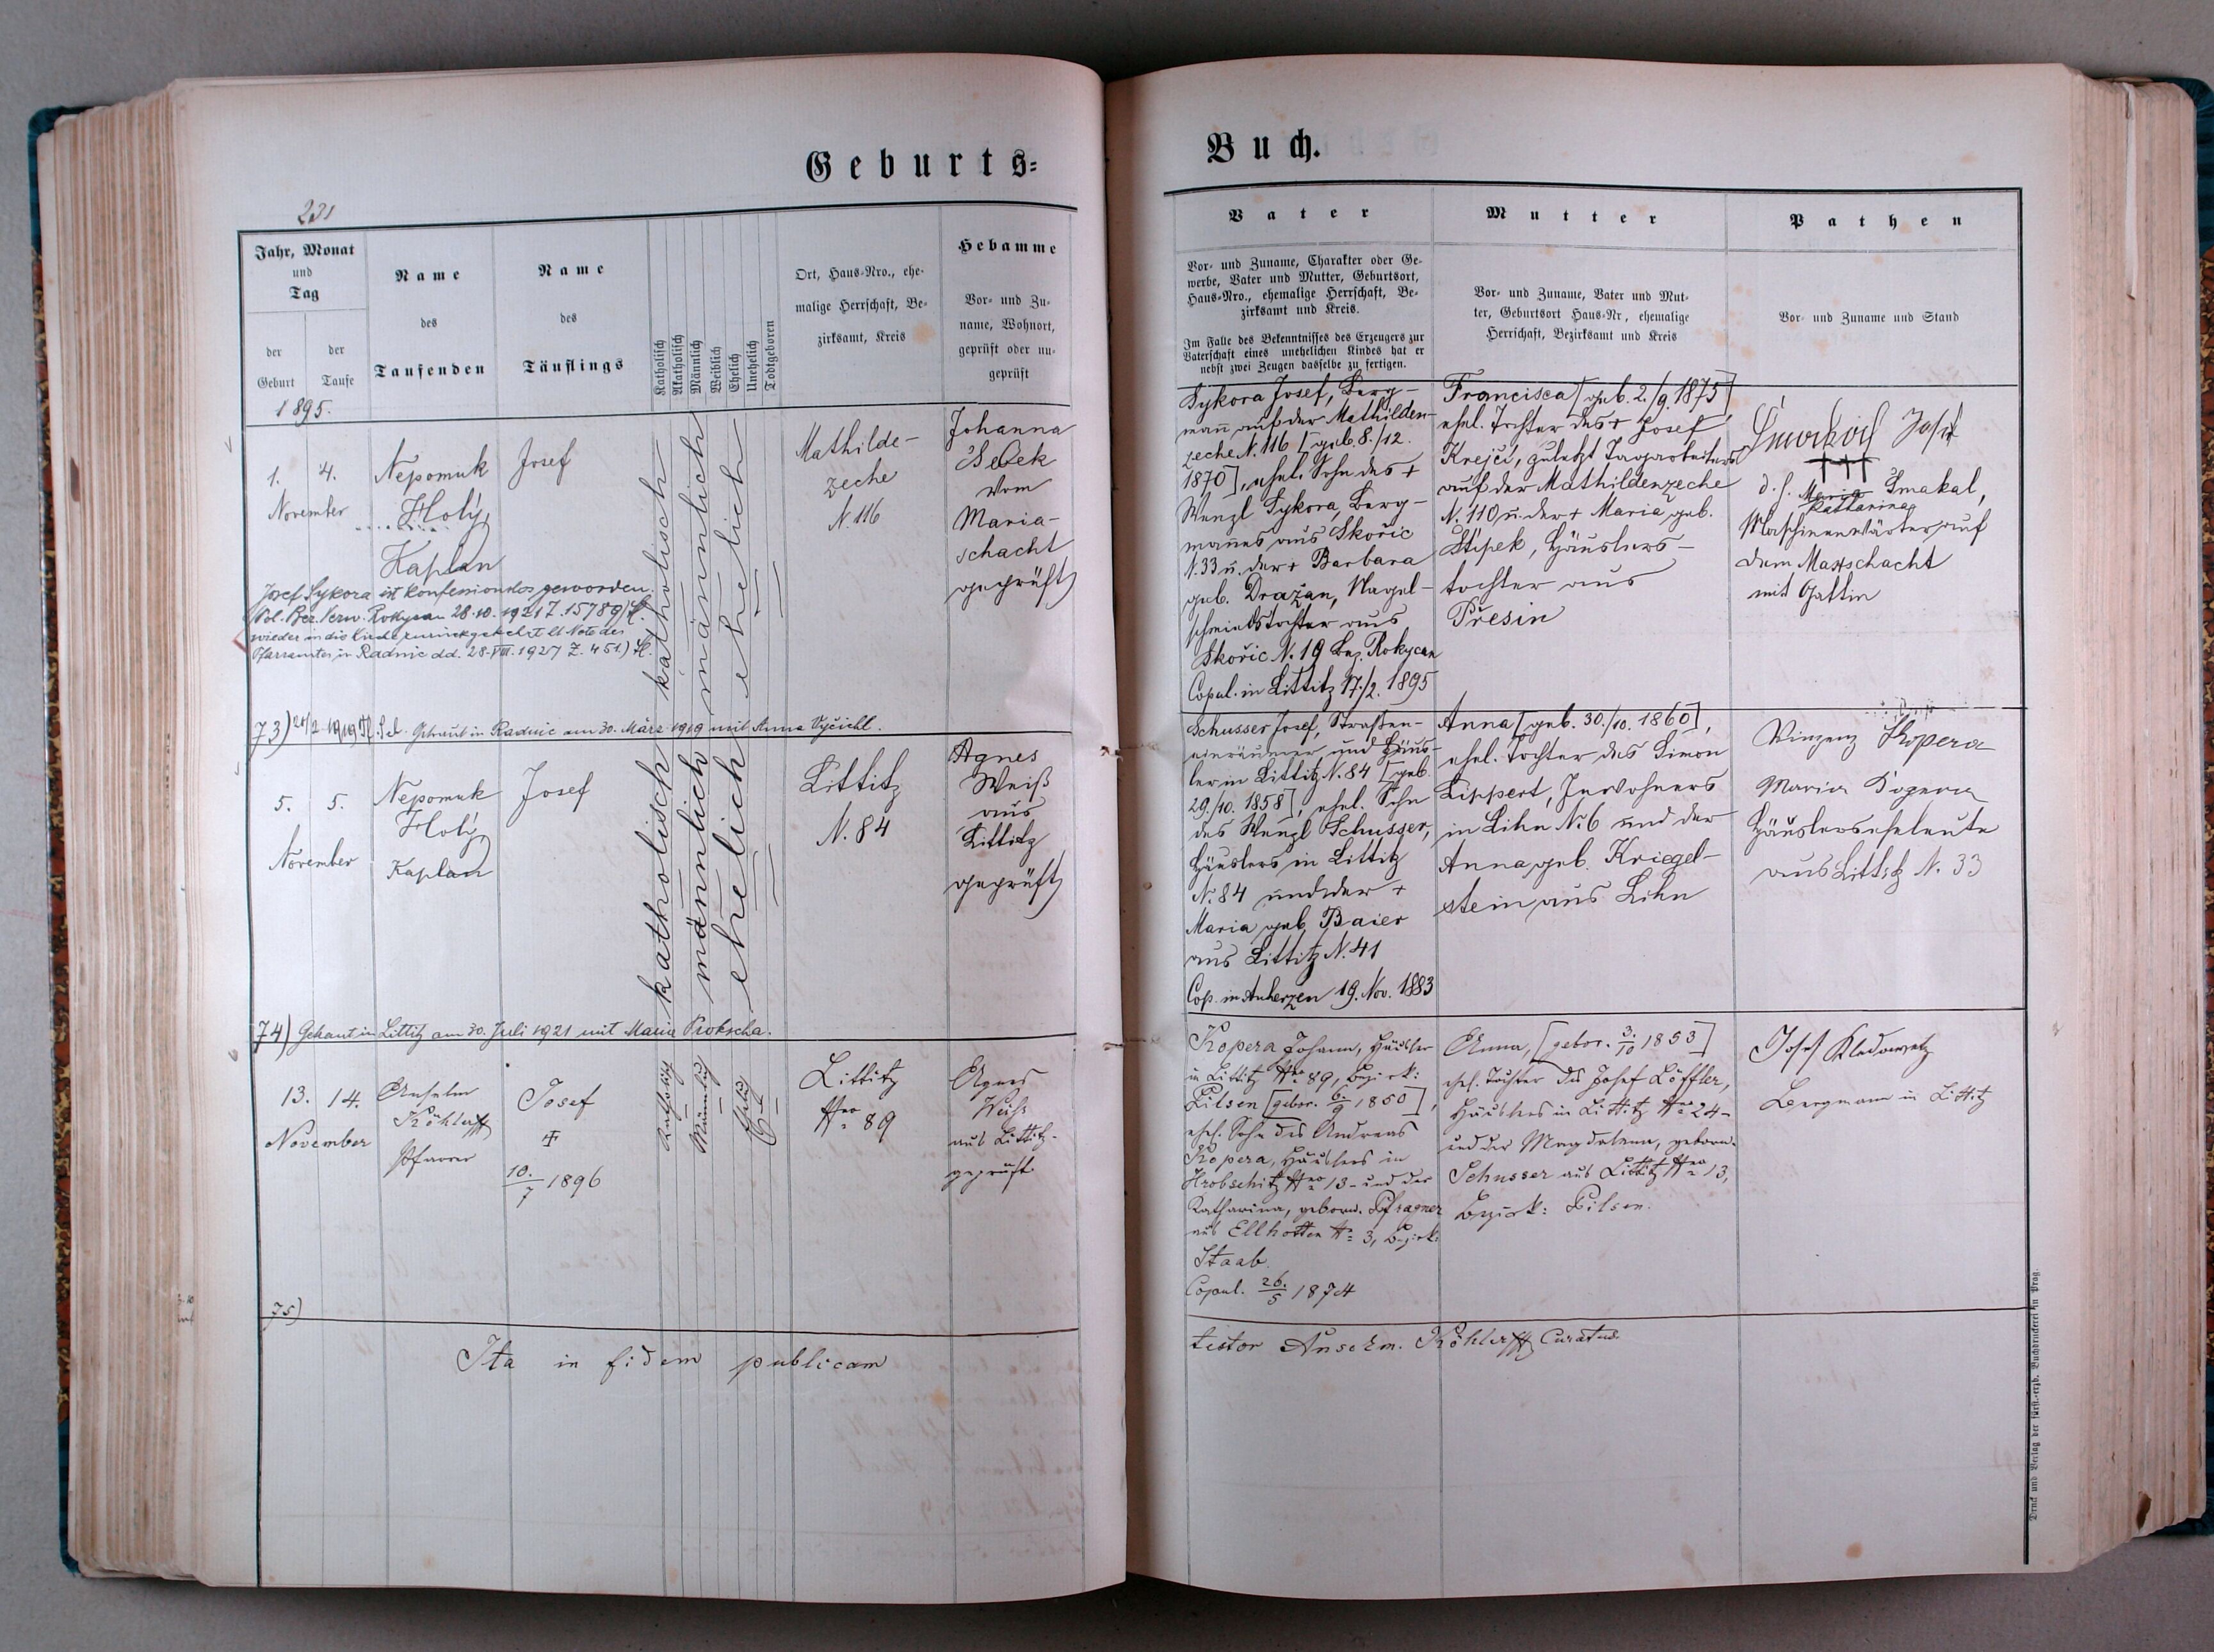 Geburts=
Buch.
231
Jahr, Monat
und
Tag
der
Geburt
der
Taufe
Name
des
Taufenden
Name
des
Täuflings
Katholisch
Akatholisch
Männlich
Weiblich
Ehelich
Unehelich
Todtgeboren
Ort, Haus-Nro., ehe-
malige Herrschaft, Be-
zirksamt, Kreis
Hebamme
Vor- und Zu-
name, Wohnort,
geprüft oder un-
geprüft
Vater
Vor- und Zuname, Charakter oder Ge-
werbe, Vater und Mutter, Geburtsort,
Haus-Nro., ehemalige Herrschaft, Be-
zirksamt und Kreis.
Im Falle des Bekenntnisses des Erzeugers zur
Vaterschaft eines unehelichen Kindes hat er
nebst zwei Zeugen dasselbe zu fertigen.
Mutter
Vor- und Zuname, Vater und Mut-
ter, Geburtsort Haus-Nr, ehemalige
Herrschaft, Bezirksamt und Kreis
Pathen
Vor- und Zuname und Stand
1895.
1. 4.
November
Nepomuk
Holý
Kaplan
Josef
katholisch
männlich
ehelich
Mathilde-
zeche
N. 116
Johanna
vom
Maria-
schacht
geprüft
Josef Sykora ist konfessionslos geworden.
Pol. Bez. Verw. Rokycan 28.10.1921 Z. 15789
wieder in die Kirche zurückgekehrt lt Note des
Pfarramtes in Radnic dd. 28.VIII.1927 Z. 451)
Sykora Josef, Berg-
mann auf der Mathilden-
zeche N. 116 [geb. 8./12.
1870], ehel. Sohn des +
Wenzl Sykora, Berg-
mannes aus Skořic
N. 33 u. der + Barbara
geb. Dražan, Nagel-
schmiedstochter aus
Skořic N. 19 Bez. Rokycan
Copul. in Littitz 17./2. 1895
Francisca [geb. 2./9. 1875]
ehel. Tochter des + Josef
Krejčí, zuletzt Tagarbeiters
auf der Mathildenzeche
N. 110 u. der + Maria geb.
Štípek, Häuslers-
tochter aus
Přesin
Josef
+++
d. s. Maria Smakal,
Katharina
Maschinenwärter auf
dem Maxschacht
mit Gattin
73) 24/2 1919 Getraut in Radnic am 30. März 1919 mit Anna Vyčichl.
5. 5.
November
Nepomuk
Holý
Kaplan
Josef
katholisch
männlich
ehelich
Littitz
N. 84
Agnes
Weiß
aus
Littitz
geprüft
Schusser Josef, Straßen-
einräumer und Häus-
ler in Littitz N. 84 [geb.
29./10. 1858], ehel. Sohn
des Wenzl Schusser,
Häuslers in Littitz
N. 84 und der +
Maria geb. Baier
aus Littitz N. 41
Cop. in Auherzen 19. Nov. 1883
Anna [geb. 30./10. 1860],
ehel. Tochter des Simon
Lippert, Inwohners
in Lihn N. 6 und der
Anna geb. Kriegel-
stein aus Lihn
Vinzenz Kopera
Maria Kopera
Häuslerseheleute
aus Littitz N. 33
74) Getraut in Littitz am 30. Juli 1921 mit Maria Prokscha.
13. 14.
November
Anselm
Köhler
Pfarrer
Josef
10./7 1896
Katholisch
Männlich
Ehelich
Littitz
Nro 89
Agnes
Weihs
aus Littitz-
geprüft
Kopera Johann, Häusler
in Littitz Nro 89, Bezirk:
Pilsen [gebor. 6./9 1850],
ehel. Sohn des Andreas
Kopera, Häuslers in
Hrobschitz Nro 13- und der
Katharina, geborn. Pfragner
aus Ellhotten No 3, Bezirk:
Staab.
Copul. 26./5 1874
Anna, [gebor. 3./10 1853]
ehel. Tochter des Josef Löffler,
Häuslers in Littitz No 24-
und der Magdalena, geborn.
Schusser aus Littitz Nro 13,
Bezirk: Pilsen.
Josef Kladiwetz
Bergmann in Littitz
75)
Ita in fidem publicam
testor Anselm. Köhler Curatus.
Druck und Verlag der fürst.-erzb. Buchdruckerei in Prag.